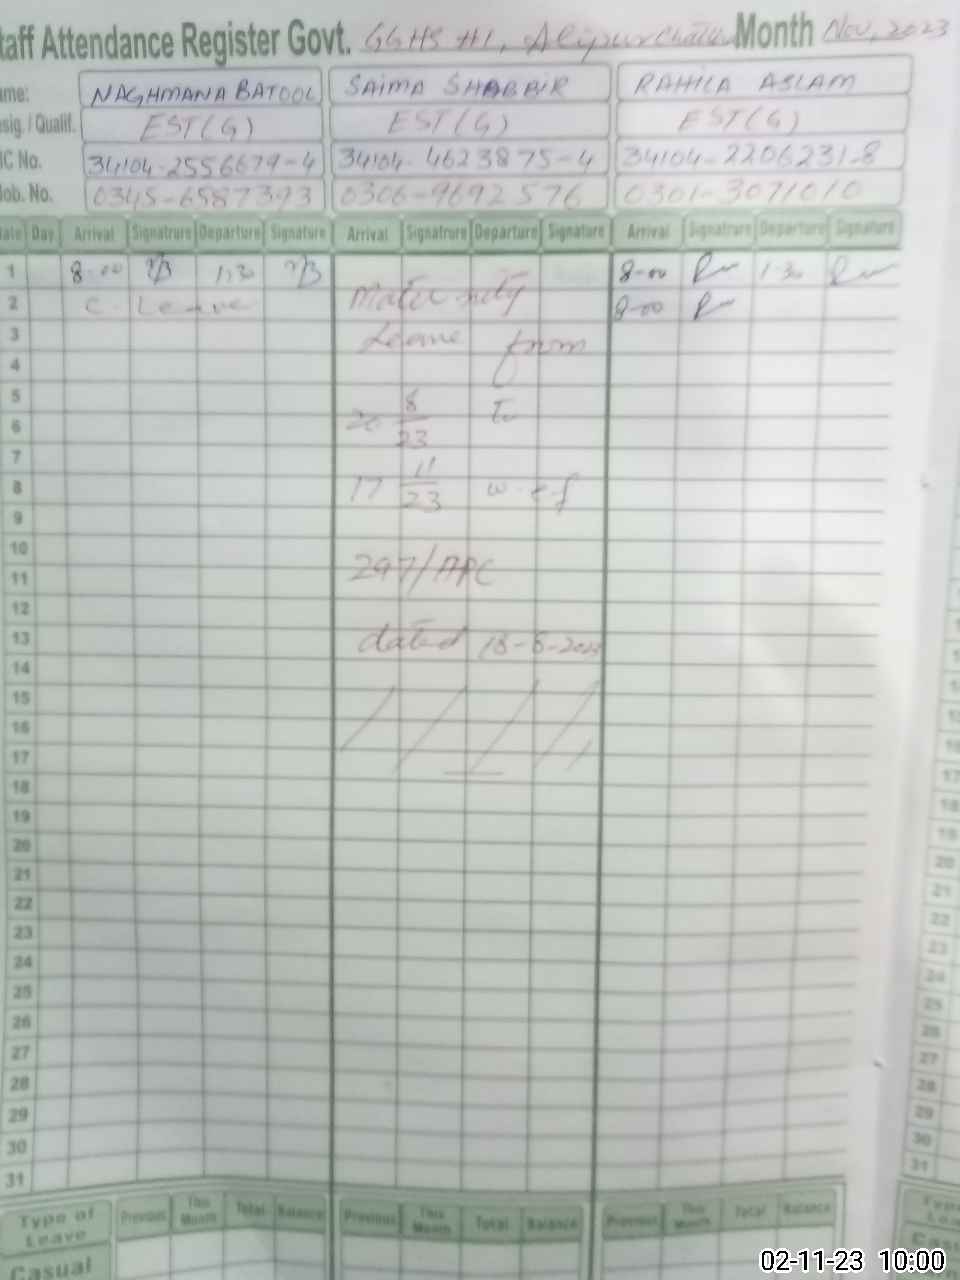 taff Attendance Register Govt. GGHS #1, Alipur Chatha Month Nov, 2023
ame: NAGHMANA BATOOL SAIMA SHABBIR RAHILA ASLAM
sig. / Qualif. EST(G) EST(G) EST(G)
IC No. 34104-2556679-4 34104-4623875-4 34104-2206231-8
lob. No. 0345-6587393 0306-9692576 0301-3071010
Date Day Arrival Signatrure Departure Signature Arrival Signatrure Departure Signature Arrival Signatrure Departure Signature
1 8-00 1:30 8-00 1-30
2 C. Leave Maternity 8-00
3 Leave from
4
5 8
6 20 23 To
7 11
8 17 23 w.e.f
9
10
11 297/ARC
12
13 dated 18-8-2023
14
15
16
17
18
19
20
21
22
23
24
25
26
27
28
29
30
31
Type of Leave Previous This Month Total Balance Previous This Month Total Balance Previous This Month Total Balance
Casual
02-11-23 10:00